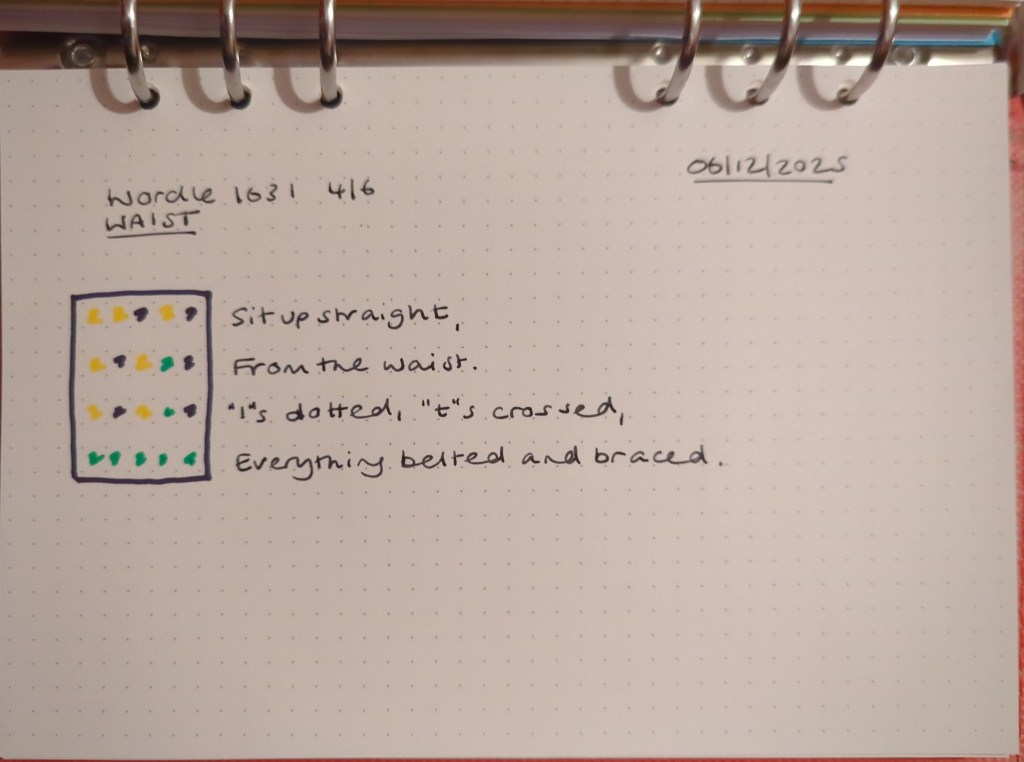 06/12/2025
Wordle 1631 4/6
WAIST
Sit up straight,
From the waist.
"I"s dotted, "t"s crossed,
Everything belted and braced.